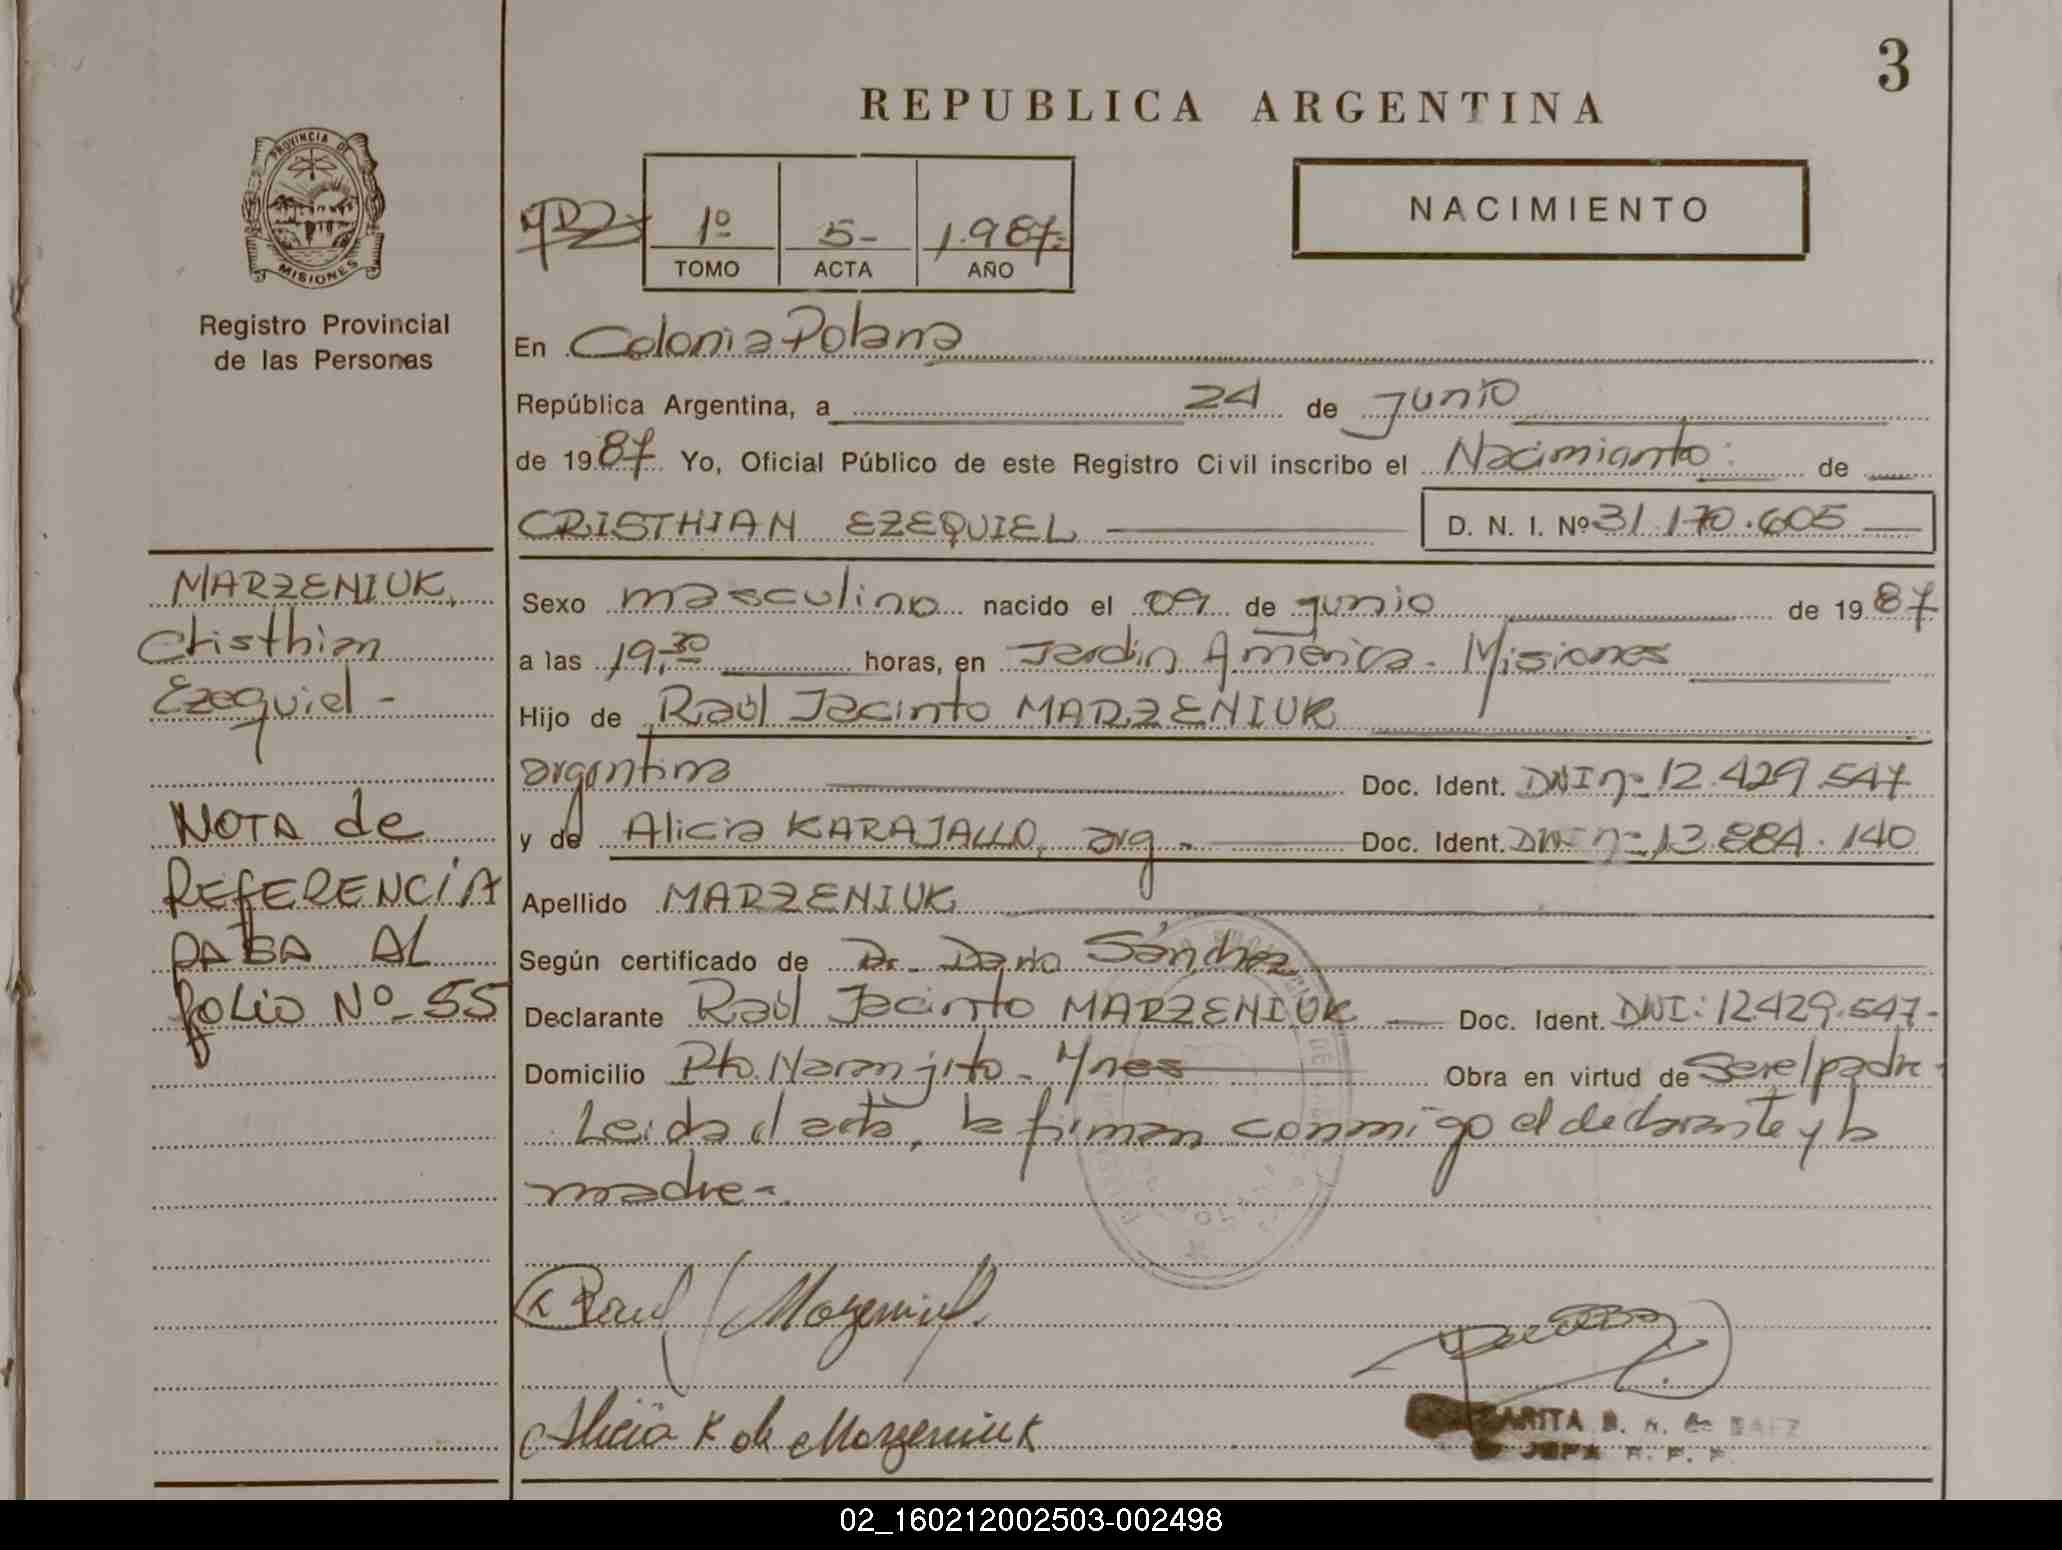 3
REPUBLICA ARGENTINA
PROVINCIA DE
MISIONES
Registro Provincial
de las Personas
1º 5- 1.987=
TOMO ACTA AÑO
NACIMIENTO
En Colonia Polana
República Argentina, a 24 de junio
de 1987 Yo, Oficial Público de este Registro Civil inscribo el Nacimianto: de
CRISTHIAN EZEQUIEL D. N. I. Nº 31.170.605
MARZENIUK,
Cristhian
Ezequiel -
NOTA de
REFERENCIA
PASA AL
folio Nº_ 55
Sexo masculino nacido el 09 de junio de 1987
a las 19,30 horas, en Jardín América - Misiones
Hijo de Raúl Jacinto MARZENIUK
argentina Doc. Ident. DNI nº 12.429.547
y de Alicia KARAJALLO, arg - Doc. Ident. DNI nº 13.884.140
Apellido MARZENIUK
Según certificado de Dr. Darío Sánchez
Declarante Raúl Jacinto MARZENIUK Doc. Ident. DNI: 12.429.547-
Domicilio Pto. Naranjito - Ynes Obra en virtud de Ser el padre -
Leida el acta, la firman conmigo el declarante y la
madre -.
Raul J Marzeniuk
Alicia K de Marzeniuk
JEFA R. P. P.
02_160212002503-002498